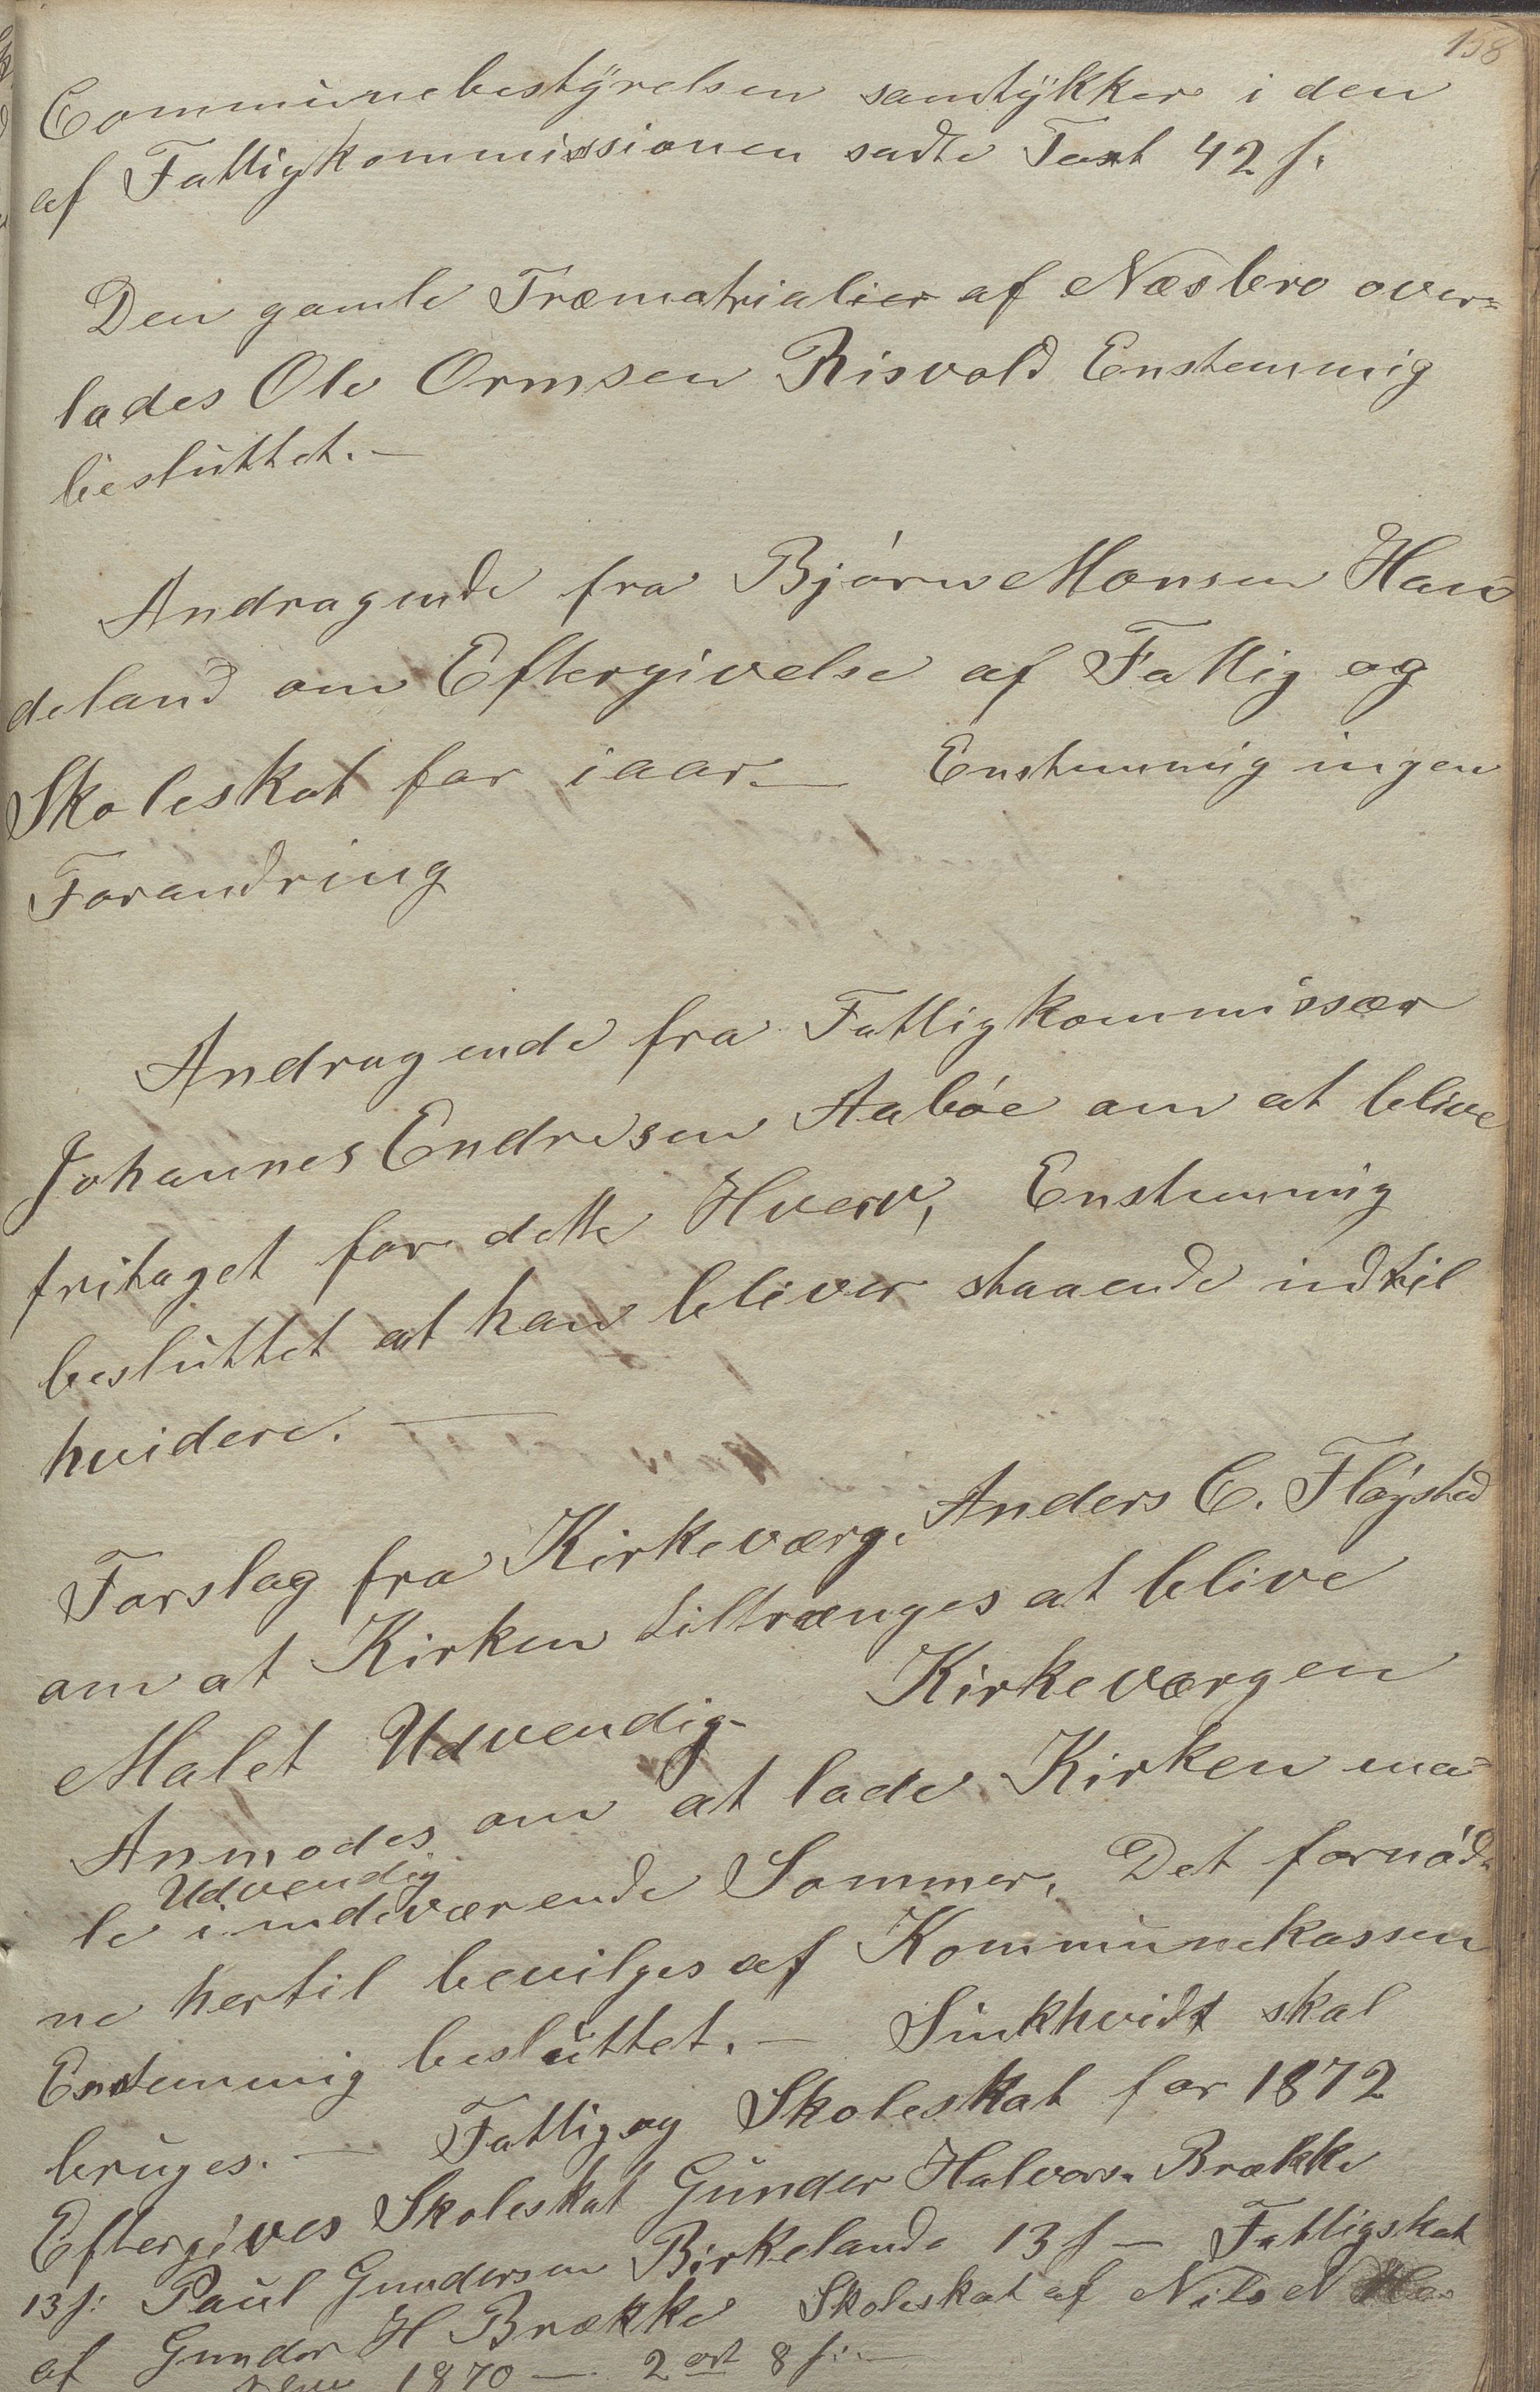 158
Communebestÿrelsen samtÿkker i den
af Fattigkommissionen sadte Taxt 42 s.
Den gamle Træmatrialier af Næsbro over=
lades Ole Ormsen Risvold Enstemmig
besluttet. —
Andragende fra Bjørn Monsen Hau
deland om Eftergivelse af Fattig og
Skoleskat for iaar — Enstemmig ingen
Forandring
Andragende fra Fattigkommissær
Johannes Endresen Aabøe om at blive
fritaget for dette Hverv, Enstemmig
besluttet at han bliver staaende indtil
hvidere. —
Forslag fra Kirkeværge Anders C. Fløysted
om at Kirken tiltrænges at blive
Malet Udvendig — Kirkeværgen
Anmodes om at lade Kirken ma=
Udvendig
le indeværende Sommer, Det fornød-
ne hertil bevilges af Kommunekassen
Enstemmig besluttet. — Sinkhvidt skal
bruges. — Fattig og Skoleskat for 1872
Eftergives Skoleskat Gunder Halvors. Brække
13 s: Paul Gundersen Birkelande 13 s — Fattigskat
af Gunder H Brække Skoleskat af Nils N
1870 — 2 ort 8 s: —